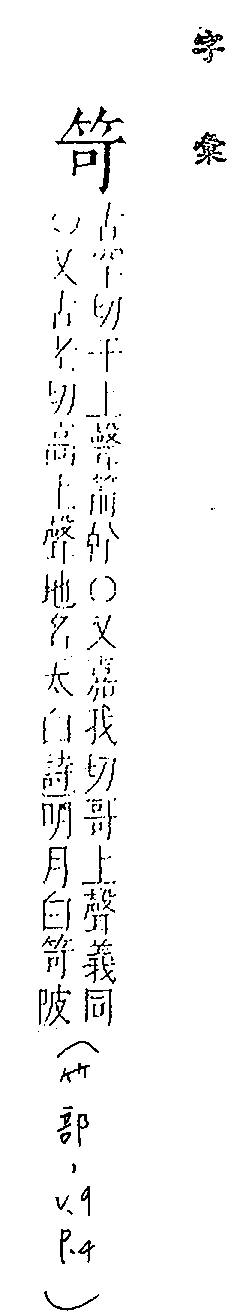 字彙
笴
古罕切干上聲箭幹〇又嘉我切哥上聲義同
〇又古老切高上聲地名太白詩明月白笴陂(竹部,v.9 P.4)